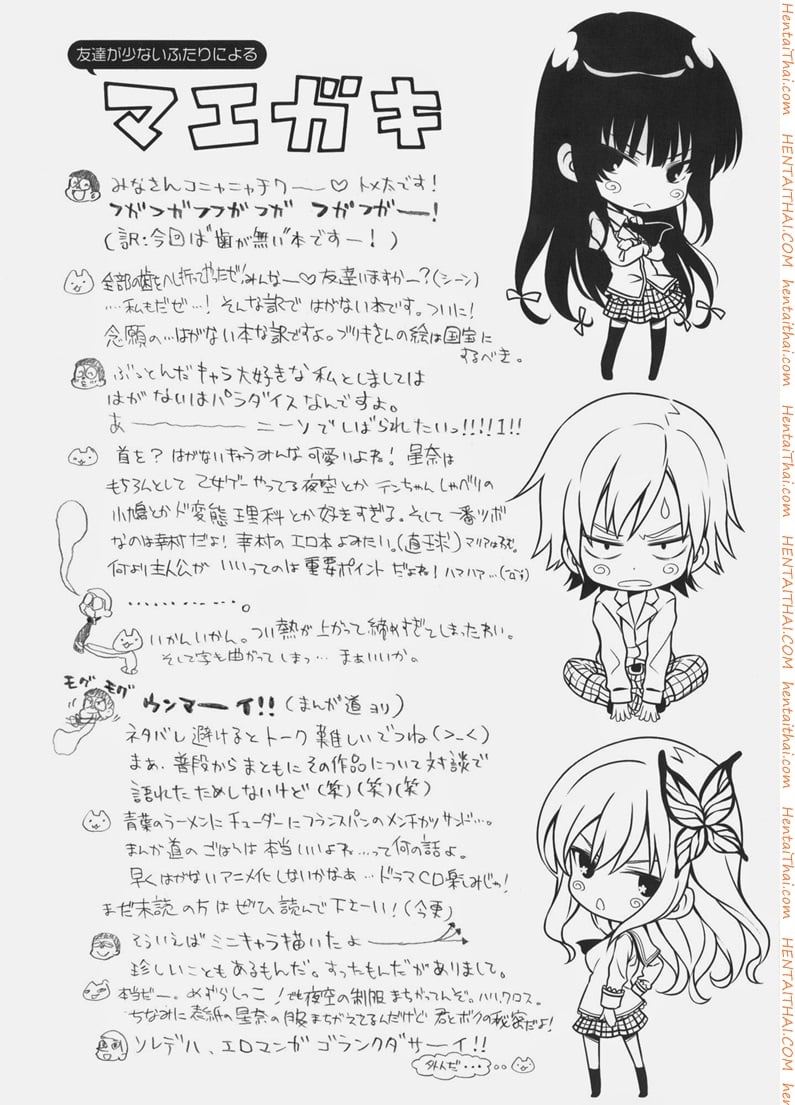 友達が少ないふたりによる
マエガキ
みなさんコニャニャチワー―♡ トメ太です!
フガフガフフガフガ フガフガー!
(訳:今回は"歯が無い"本ですー!)
全部の歯をへし折ってやったぜ!みんな―♡友達いますかー?(シーン)
…私もだぜ…!そんな訳で はがない本です。ついに!
念願の…はがない本な訳ですよ。ブリキさんの絵は国宝に
するべき。
ぶっとんだキャラ大好きな私としましては
はがないはパラダイスなんですよ。
あ―――― ニーソでしばられたいっ!!!!1!!
首を?はがないキャラみんな可愛いよね!星奈は
もちろんとして乙女ゲーやってる夜空とかテンちゃんしゃべりの
小鳩とかド変態理科とか好きすぎる。そして一番ツボ
なのは幸村だよ!幸村のエロ本よみたい。(直球)
何より主人公が いいってのは重要ポイントだよね!ハァハァ…
…………。
いかんいかん。つい熱が上がって締めすぎてしまったわい。
そして字も曲がってしまっ…まぁいいか。
モグ モグ
ウンマーイ!!(まんが道ヨリ)
ネタバレ避けるとトーク難しいでつね(>_<)
まぁ、普段からまともにその作品について対談で
語れたためしないけど(笑)(笑)(笑)
青葉のラーメンにチューダーにフランスパンのメンチカツサンド…。
まんが道のごはんは本当いいよね…って何の話よ。
早くはがないアニメ化しないかなぁ…ドラマCD楽しみじゃ!
まだ未読の方はぜひ読んで下さーい!(今更)
そういえばミニキャラ描いたよ
珍しいこともあるもんだ。すったもんだがありまして。
本当ビー。めずらしっこ!でも夜空の制服まちがってんぞ。
ちなみに表紙の星奈の服まちがえてるんだけど君とボクの秘密だよ!
ソレデハ、エロマンガ ゴランクダサーイ!!
HentaiThai.com HENTAITHAI.COM hentaithai.com HentaiThai.com HENTAITHAI.COM hentaithai.com HentaiThai.com HENTAITHAI.COM hentai